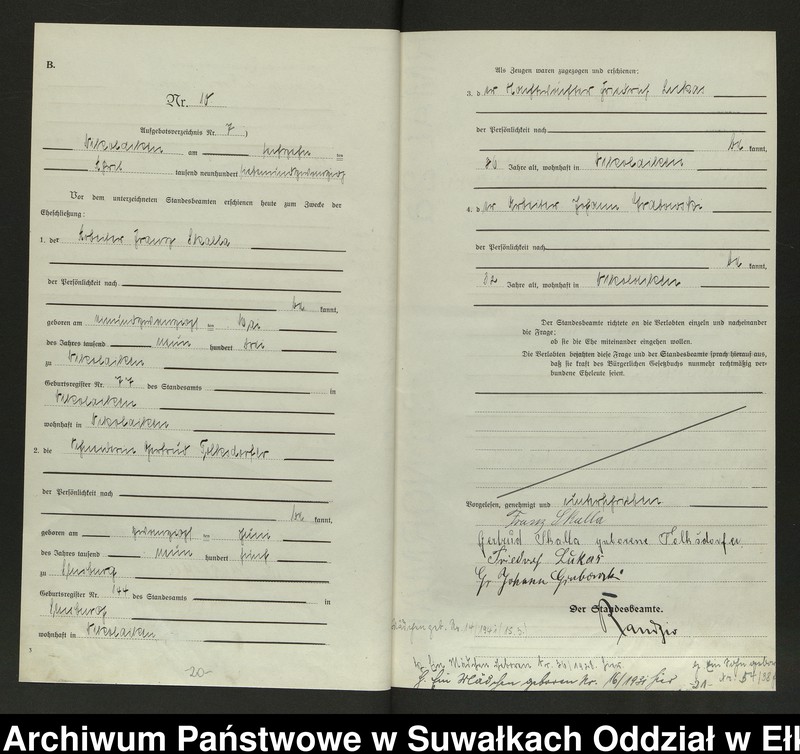 B.
Nr. 18
Aufgebotsverzeichnis Nr. 7)
Nikolaiken am sechszehn ten
April tausend neunhundert siebenundzwanzig
Vor dem unterzeichneten Standesbeamten erschienen heute zum Zwecke der
Eheschließung:
1. der Arbeiter Franz Skalla
der Persönlichkeit nach
be kannt,
geboren am neunundzwanzigsten Mai
des Jahres tausend neun hundert drei
zu Nikolaiken
Geburtsregister Nr. 77 des Standesamts in
Nikolaiken
wohnhaft in Nikolaiken
2. die Schneiderin Gertrud Tolksdorf
der Persönlichkeit nach
be kannt,
geboren am zwanzigsten Juni
des Jahres tausend neun hundert fünf
zu Sensburg
Geburtsregister Nr. 144 des Standesamts in
Sensburg
wohnhaft in Nikolaiken
3
-20-
Als Zeugen waren zugezogen und erschienen:
3. der Friedrich Lukas
der Persönlichkeit nach
be kannt,
Jahre alt, wohnhaft in Nikolaiken
4. der Arbeiter Johann Grabowski
der Persönlichkeit nach
be kannt,
82 Jahre alt, wohnhaft in Nikolaiken
Der Standesbeamte richtete an die Verlobten einzeln und nacheinander
die Frage:
ob sie die Ehe miteinander eingehen wollen.
Die Verlobten bejahten diese Frage und der Standesbeamte sprach hierauf aus,
daß sie kraft des Bürgerlichen Gesetzbuchs nunmehr rechtmäßig ver-
bundene Eheleute seien.
Vorgelesen, genehmigt und unterschrieben
Franz Skalla
Gertrud Skalla geborene Tolksdorf
Friedrich Lukas
Johann Grabowski
Der Standesbeamte.
Mädchen geb. Nr. 14
Ein Mädchen geboren Nr. hier
Ein Sohn geboren
Ein Mädchen geboren Nr. 16/1931 hier
Nr. 54
Archiwum Państwowe w Suwałkach Oddział w Eł